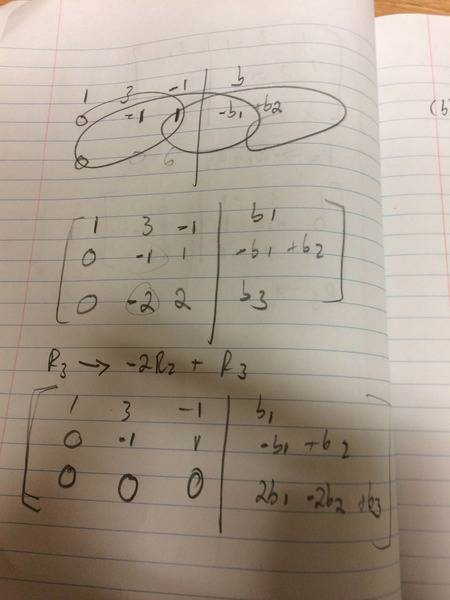 1 3 -1 | b
0 -1 1 | -b1 +b2
0 0 0
1 3 -1 | b1
0 -1 1 | -b1 +b2
0 -2 2 | b3
R3 → -2R2 + R3
1 3 -1 | b1
0 -1 1 | -b1 +b2
0 0 0 | 2b1 -2b2 +b3
(b